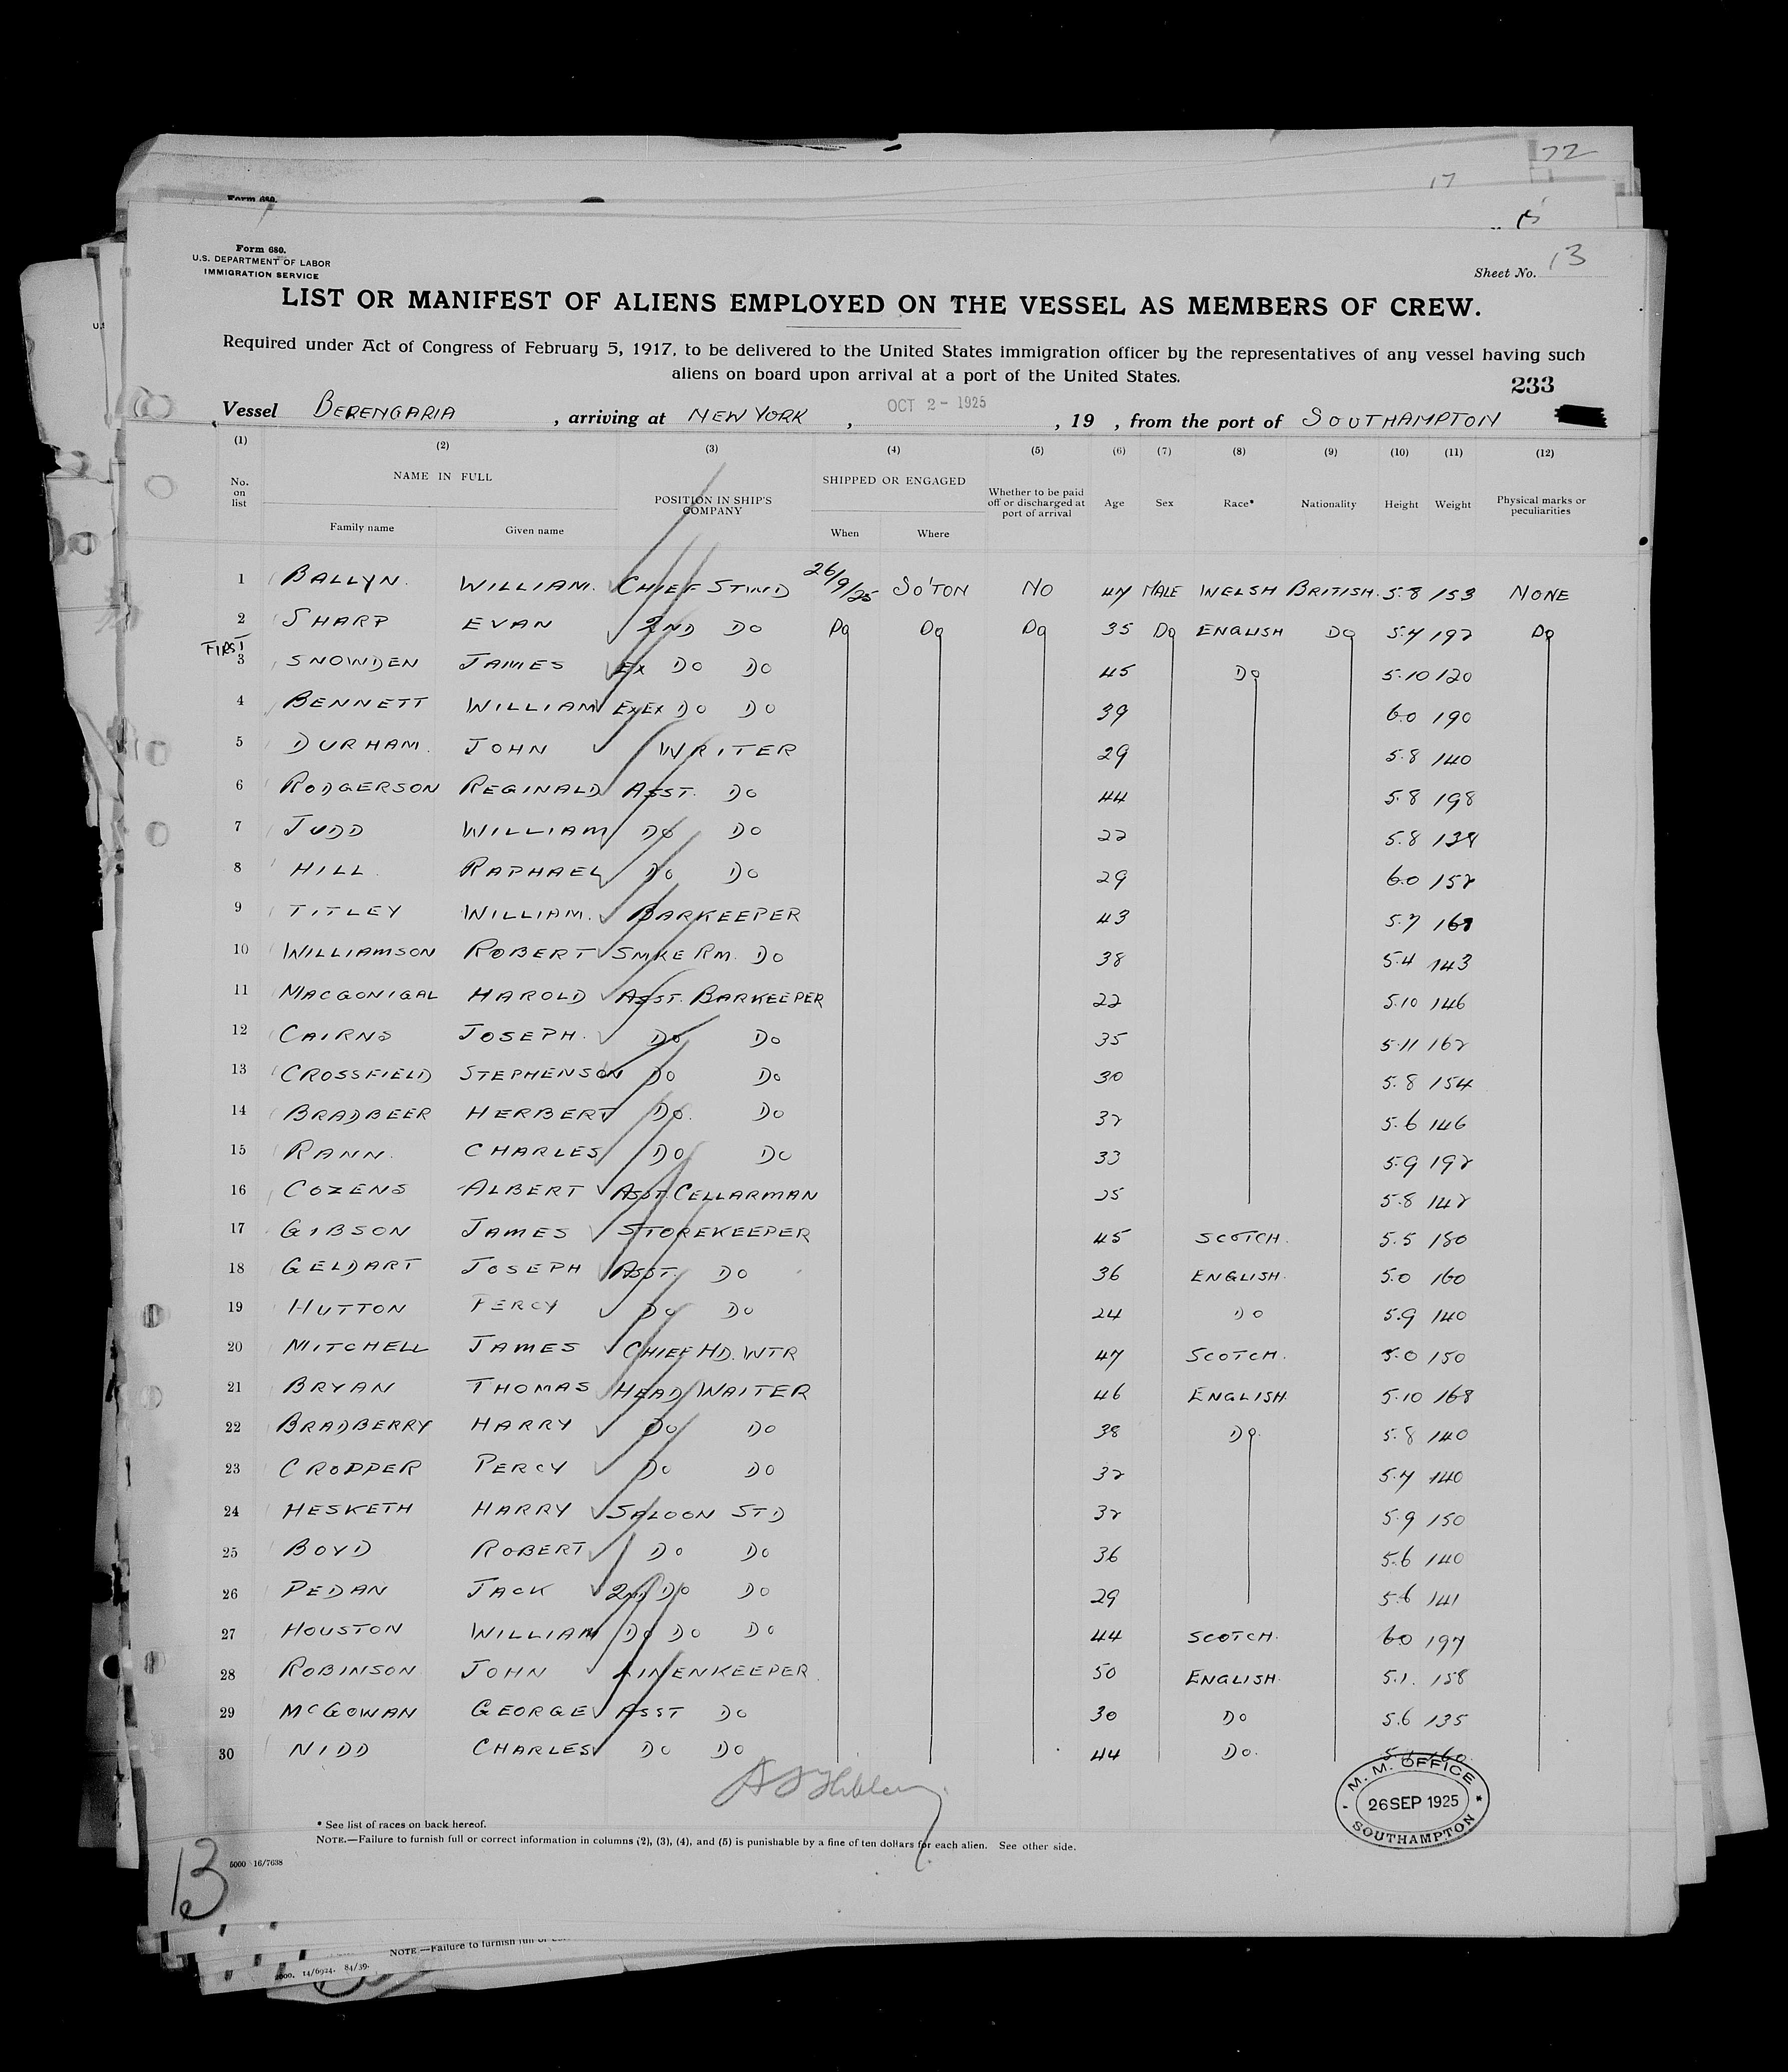 22
17
Form 680.
Form 680.
U.S. DEPARTMENT OF LABOR
IMMIGRATION SERVICE
Sheet No. 13
LIST OR MANIFEST OF ALIENS EMPLOYED ON THE VESSEL AS MEMBERS OF CREW.
Required under Act of Congress of February 5, 1917, to be delivered to the United States immigration officer by the representatives of any vessel having such
aliens on board upon arrival at a port of the United States.
233
Vessel BERENGARIA, arriving at NEW YORK, OCT 2 - 1925, 19 , from the port of SOUTHAMPTON
(1) (2) (3) (4) (5) (6) (7) (8) (9) (10) (11) (12)
No. on list NAME IN FULL Family name Given name POSITION IN SHIP'S COMPANY SHIPPED OR ENGAGED When Where Whether to be paid off or discharged at port of arrival Age Sex Race* Nationality Height Weight Physical marks or peculiarities
1 BALLYN. WILLIAM. CHIEF STWD 26/9/25 SO'TON NO 47 MALE WELSH BRITISH. 5.8 153 NONE
2 SHARP EVAN 2ND DO DO DO DO 35 DO ENGLISH DO 5.7 192 DO
FIRST
3 SNOWDEN JAMES EX DO DO 45 DO 5.10 120
4 BENNETT WILLIAM EXEX DO DO 39 6.0 190
5 DURHAM. JOHN WRITER 29 5.8 140
6 RODGERSON REGINALD ASST. DO 44 5.8 198
7 JUDD WILLIAM DO DO 22 5.8
8 HILL RAPHAEL DO DO 29 6.0 152
9 TITLEY WILLIAM. BARKEEPER 43 5.7
10 WILLIAMSON ROBERT SMKE RM. DO 38 5.4 143
11 MACGONIGAL HAROLD ASST. BARKEEPER 22 5.10 146
12 CAIRNS JOSEPH. DO DO 35 5.11 162
13 CROSSFIELD STEPHENSON DO DO 30 5.8 154
14 BRADBEER HERBERT DO. DO 32 5.6 146
15 RANN. CHARLES DO DO 33 5.9 192
16 COZENS ALBERT ASST. CELLARMAN 25 5.8 142
17 GIBSON JAMES STOREKEEPER 45 SCOTCH. 5.5 180
18 GELDART JOSEPH ASST. DO 36 ENGLISH. 5.0 160
19 HUTTON PERCY DO DO 24 DO 5.9 140
20 MITCHELL JAMES CHIEF HD. WTR 47 SCOTCH. 5.0 150
21 BRYAN THOMAS HEAD WAITER 46 ENGLISH. 5.10 168
22 BRADBERRY HARRY DO DO 38 DO. 5.8 140
23 CROPPER PERCY DO DO 32 5.7 140
24 HESKETH HARRY SALOON STD 32 5.9 150
25 BOYD ROBERT DO DO 36 5.6 140
26 PEDAN JACK 2ND DO DO 29 5.6 141
27 HOUSTON WILLIAM DO DO DO 44 SCOTCH. 6.0 197
28 ROBINSON JOHN LINENKEEPER. 50 ENGLISH. 5.1. 158
29 McGOWAN GEORGE ASST DO 30 DO 5.6 135
30 NIDD CHARLES DO DO 44 DO. 160
M. M. OFFICE
26 SEP 1925
SOUTHAMPTON
* See list of races on back hereof.
NOTE.—Failure to furnish full or correct information in columns (2), (3), (4), and (5) is punishable by a fine of ten dollars for each alien. See other side.
5000 16/7638
13
NOTE.—Failure to furnish full or
2000. 14/6924. 84/39.